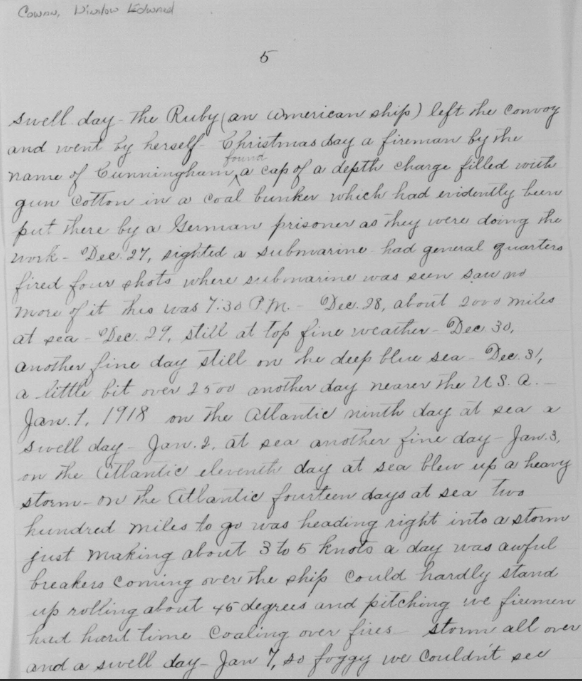 Cowan, Winslow Edward
5
swell day - the Ruby (an American ship) left the convoy
and went by herself - Christmas day a fireman by the
name of Cunningham found a cap of a depth charge filled with
gun cotton in a coal bunker which had evidently been
put there by a German prisoner as they were doing the
work - Dec. 27, sighted a submarine had general quarters
fired four shots where submarine was seen saw no
more of it this was 7:30 P.M. - Dec. 28, about 2000 miles
at sea - Dec. 29, still at top fine weather - Dec 30,
another fine day still on the deep blue sea - Dec. 31,
a little bit over 2500 another day nearer the U.S.A. -
Jan. 1, 1918 on the Atlantic ninth day at sea a
swell day - Jan. 2, at sea another fine day - Jan. 3,
on the Atlantic eleventh day at sea blew up a heavy
storm - on the Atlantic fourteen days at sea two
hundred miles to go was heading right into a storm
just making about 3 to 5 knots a day was awful
breakers coming over the ship could hardly stand
up rolling about 45 degrees and pitching we firemen
had hard time coaling over fires storm all over
and a swell day - Jan 7, so foggy we couldn't see